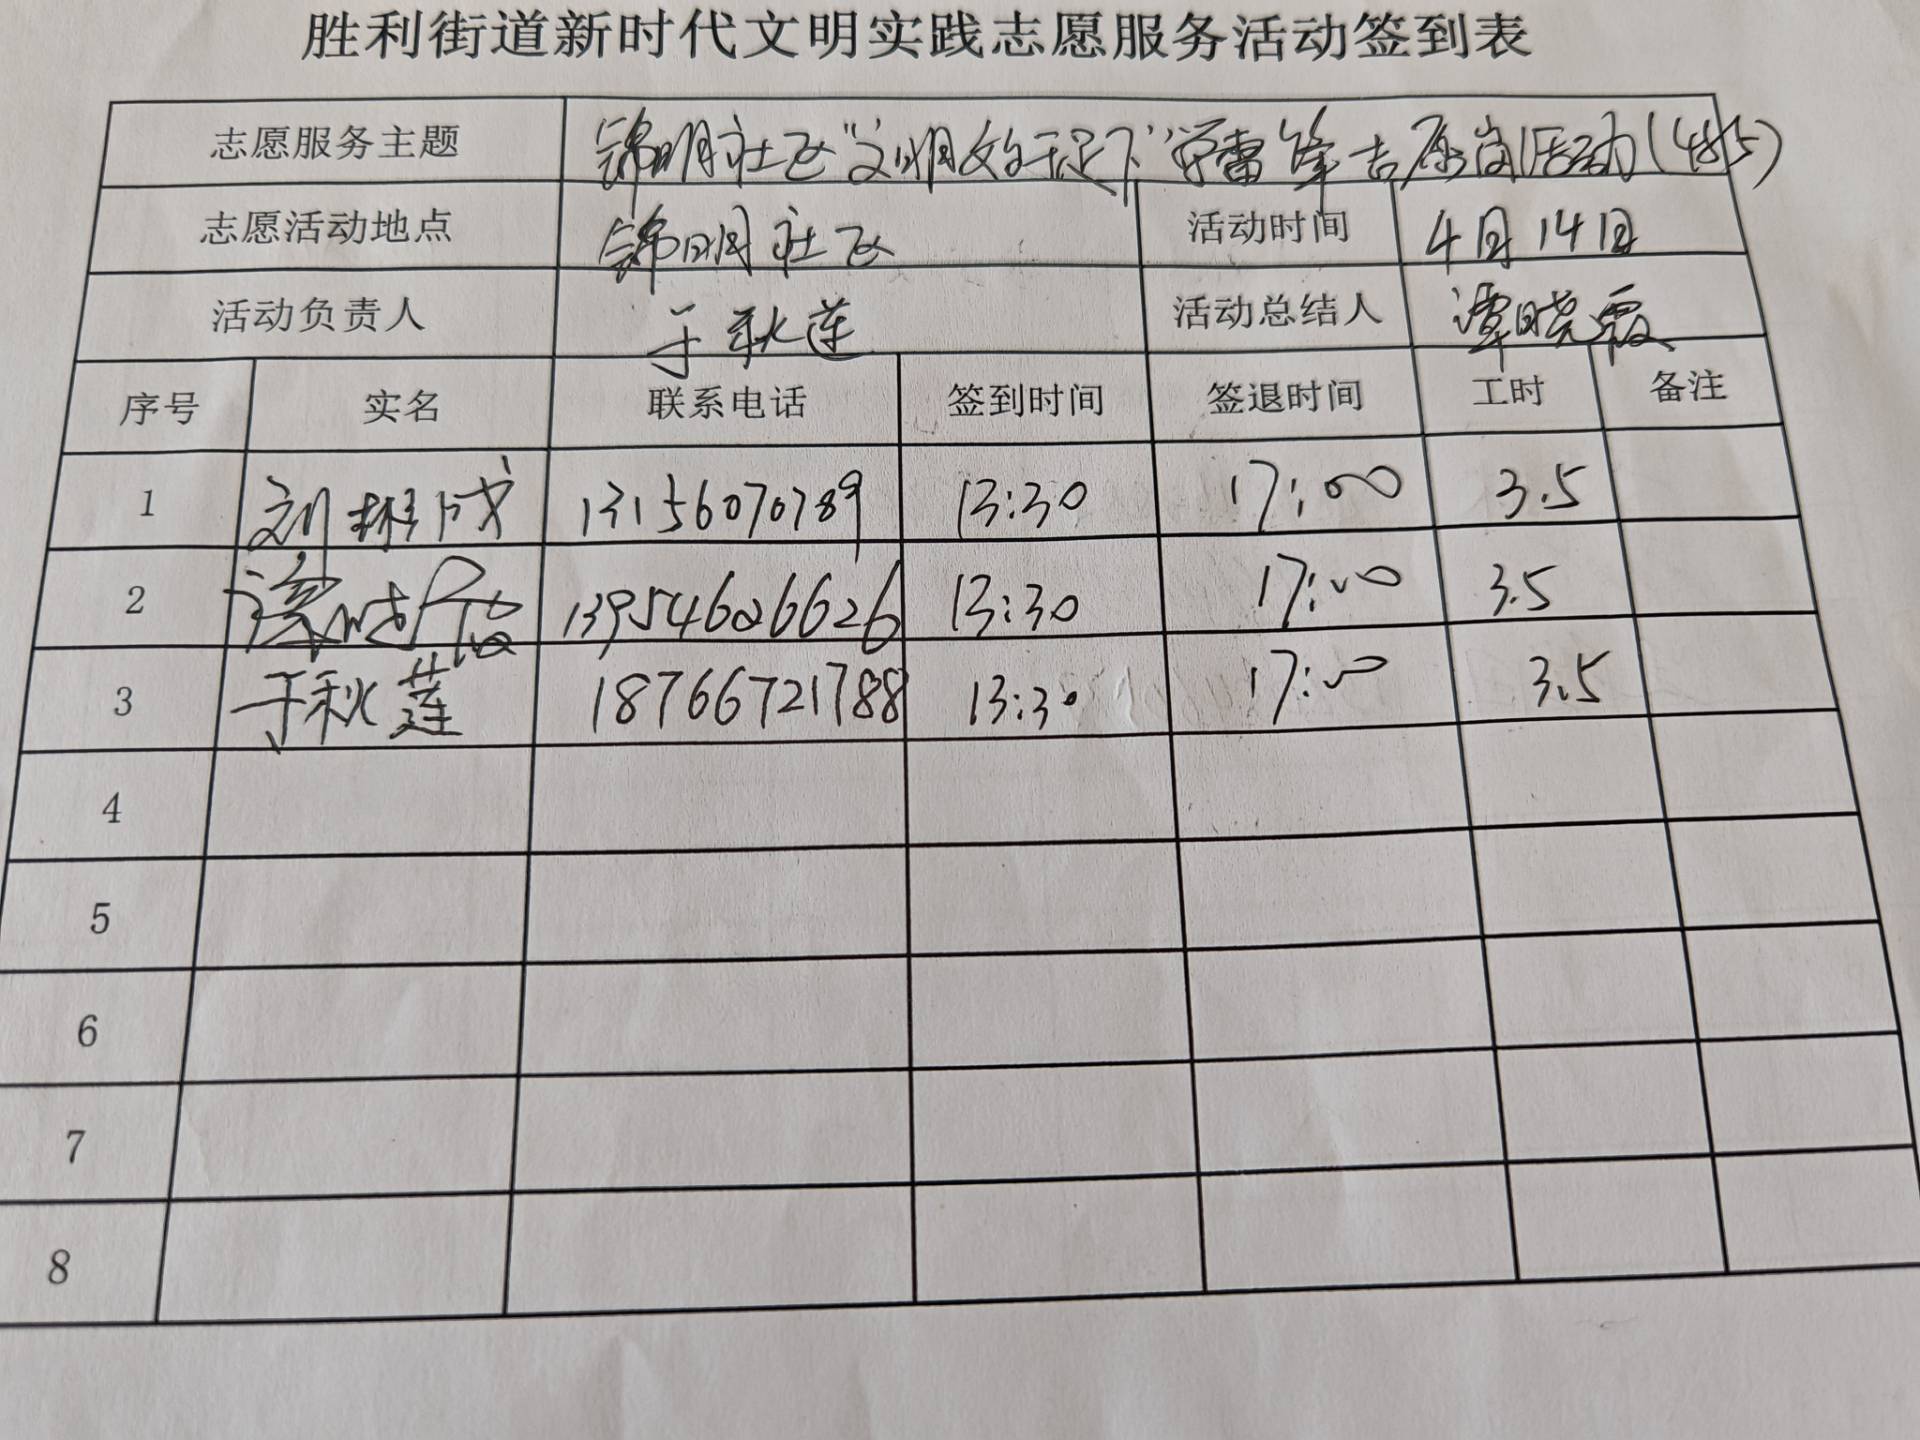 胜利街道新时代文明实践志愿服务活动签到表
志愿服务主题 锦明社区"文明始于足下"学雷锋志愿岗活动(485)
志愿活动地点 锦明社区 活动时间 4月14日
活动负责人 于秋莲 活动总结人 谭晓霞
序号 实名 联系电话 签到时间 签退时间 工时 备注
1 刘 13156070789 13:30 17:00 3.5
2 13954626626 13:30 17:00 3.5
3 于秋莲 18766721788 13:30 17:00 3.5
4
5
6
7
8